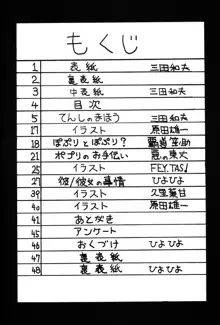 もくじ
1 表紙 三田和夫
2 裏表紙
3 中表紙 三田和夫
4 目次
5 てんしのきほう 三田和夫
17 イラスト 原田雄一
18 ぽぷりとぷぷり?
21 ポプリのお手伝い
25 イラスト FEY,TAS♩
27 彼/彼女の事情 ひよひよ
39 イラスト 久里葉甘
40 イラスト 原田雄一
41 あとがき
45 アンケート
46 おくづけ ひよひよ
47 裏表紙
48 裏表紙 ひよひよ